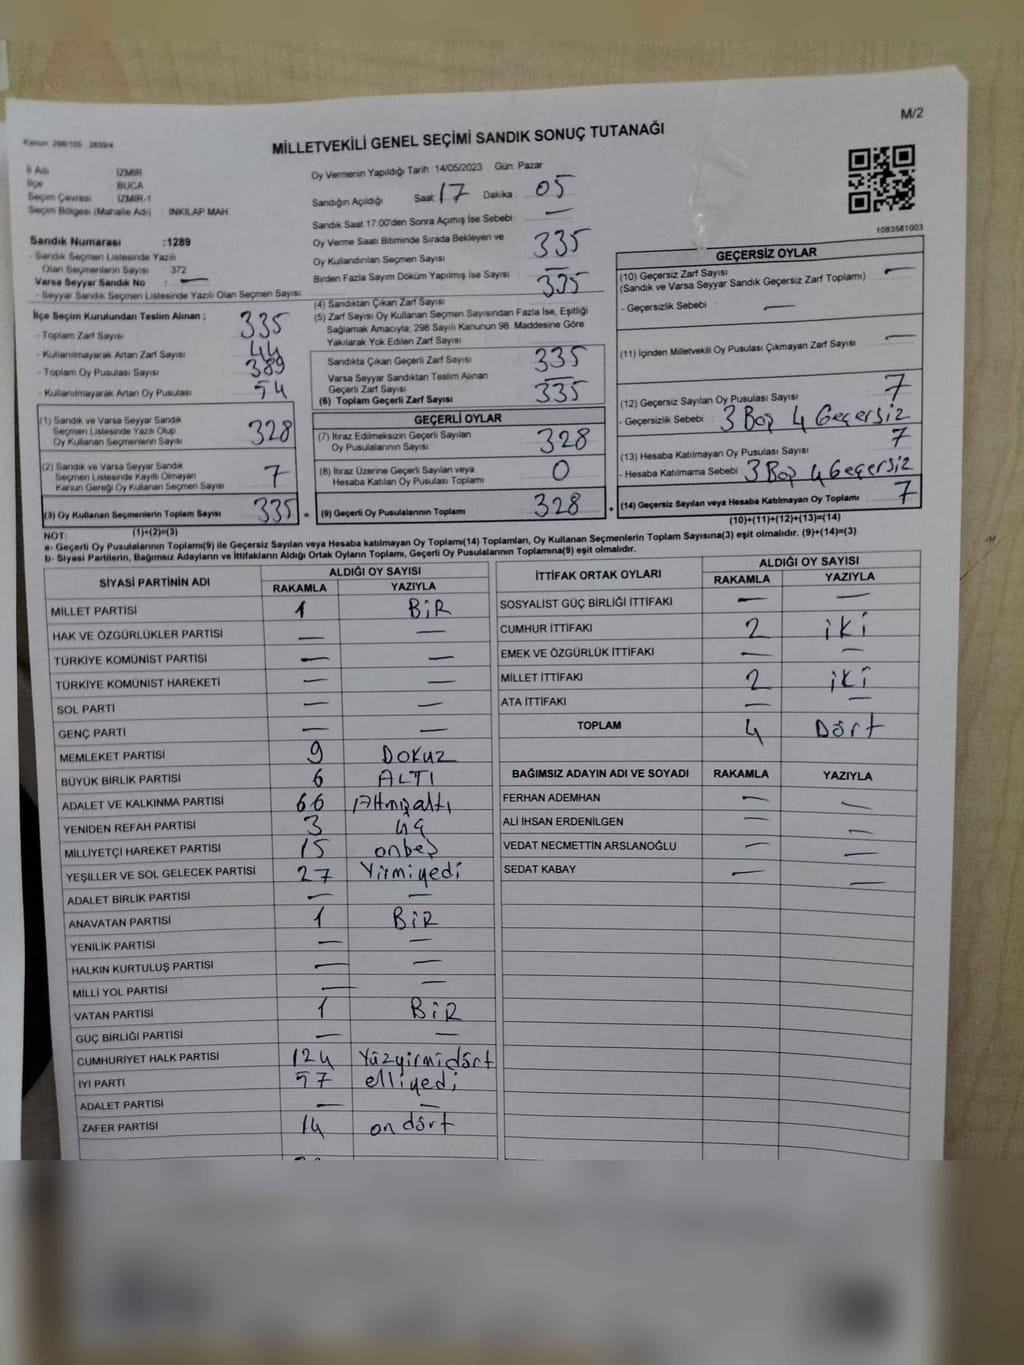 M/2
Kanun: 298/105 2839/4
MİLLETVEKİLİ GENEL SEÇİMİ SANDIK SONUÇ TUTANAĞI
İl Adı İZMİR
İlçe BUCA
Seçim Çevresi İZMİR-1
Seçim Bölgesi (Mahalle Adı) : INKILAP MAH
Sandık Numarası :1289
- Sandık Seçmen Listesinde Yazılı
Olan Seçmenlerin Sayısı 372
Varsa Seyyar Sandık No : —
- Seyyar Sandık Seçmen Listesinde Yazılı Olan Seçmen Sayısı
Oy Vermenin Yapıldığı Tarih :14/05/2023 Gün: Pazar
Sandığın Açıldığı Saat: 17 Dakika : 05
Sandık Saat 17:00'den Sonra Açımış İse Sebebi : —
Oy Verme Saati Bitiminde Sırada Bekleyen ve
Oy Kullandırılan Seçmen Sayısı 335
Birden Fazla Sayım Döküm Yapılmış İse Sayısı : —
(4) Sandıktan Çıkan Zarf Sayısı 335
(5) Zarf Sayısı Oy Kullanan Seçmen Sayısından Fazla İse, Eşitliği
Sağlamak Amacıyla; 298 Sayılı Kanunun 98. Maddesine Göre
Yakılarak Yok Edilen Zarf Sayısı
1083581003
İlçe Seçim Kurulundan Teslim Alınan ;
- Toplam Zarf Sayısı 335
- Kullanılmayarak Artan Zarf Sayısı 44
- Toplam Oy Pusulası Sayısı 389
- Kullanılmayarak Artan Oy Pusulası 54
(1) Sandık ve Varsa Seyyar Sandık
Seçmen Listesinde Yazılı Olup
Oy Kullanan Seçmenlerin Sayısı 328
(2) Sandık ve Varsa Seyyar Sandık
Seçmen Listesinde Kayıtlı Olmayan
Kanun Gereği Oy Kullanan Seçmen Sayısı 7
(3) Oy Kullanan Seçmenlerin Toplam Sayısı 335 =
(1)+(2)=(3)
Sandıkta Çıkan Geçerli Zarf Sayısı 335
Varsa Seyyar Sandıktan Teslim Alınan
Geçerli Zarf Sayısı —
(6) Toplam Geçerli Zarf Sayısı 335
GEÇERLİ OYLAR
(7) İtiraz Edilmeksizin Geçerli Sayılan
Oy Pusulalarının Sayısı 328
(8) İtiraz Üzerine Geçerli Sayılan veya
Hesaba Katılan Oy Pusulası Toplamı 0
(9) Geçerli Oy Pusulalarının Toplamı 328 +
GEÇERSİZ OYLAR
(10) Geçersiz Zarf Sayısı
(Sandık ve Varsa Seyyar Sandık Geçersiz Zarf Toplamı) —
- Geçersizlik Sebebi : —
(11) İçinden Milletvekili Oy Pusulası Çıkmayan Zarf Sayısı —
(12) Geçersiz Sayılan Oy Pusulası Sayısı 7
- Geçersizlik Sebebi : 3 Boş 4 Geçersiz
(13) Hesaba Katılmayan Oy Pusulası Sayısı 7
- Hesaba Katılmama Sebebi : 3 Boş 4 Geçersiz
(14) Geçersiz Sayılan veya Hesaba Katılmayan Oy Toplamı 7
(10)+(11)+(12)+(13)=(14)
NOT:
a- Geçerli Oy Pusulalarının Toplamı(9) ile Geçersiz Sayılan veya Hesaba katılmayan Oy Toplamı(14) Toplamları, Oy Kullanan Seçmenlerin Toplam Sayısına(3) eşit olmalıdır. (9)+(14)=(3)
b- Siyasi Partilerin, Bağımsız Adayların ve İttifakların Aldığı Ortak Oyların Toplamı, Geçerli Oy Pusulalarının Toplamına(9) eşit olmalıdır.
SİYASİ PARTİNİN ADI ALDIĞI OY SAYISI
RAKAMLA YAZIYLA
MİLLET PARTİSİ 1 BİR
HAK VE ÖZGÜRLÜKLER PARTİSİ — —
TÜRKİYE KOMÜNİST PARTİSİ — —
TÜRKİYE KOMÜNİST HAREKETİ — —
SOL PARTİ — —
GENÇ PARTİ — —
MEMLEKET PARTİSİ 9 DOKUZ
BÜYÜK BİRLİK PARTİSİ 6 ALTI
ADALET VE KALKINMA PARTİSİ 66
YENİDEN REFAH PARTİSİ 3 üç
MİLLİYETÇİ HAREKET PARTİSİ 15 onbeş
YEŞİLLER VE SOL GELECEK PARTİSİ 27 Yirmiyedi
ADALET BİRLİK PARTİSİ — —
ANAVATAN PARTİSİ 1 BİR
YENİLİK PARTİSİ — —
HALKIN KURTULUŞ PARTİSİ — —
MİLLİ YOL PARTİSİ — —
VATAN PARTİSİ 1 BİR
GÜÇ BİRLİĞİ PARTİSİ — —
CUMHURİYET HALK PARTİSİ 124 Yüzyirmidört
İYİ PARTİ 57 elliyedi
ADALET PARTİSİ — —
ZAFER PARTİSİ 14 on dört
İTTİFAK ORTAK OYLARI ALDIĞI OY SAYISI
RAKAMLA YAZIYLA
SOSYALİST GÜÇ BİRLİĞİ İTTİFAKI — —
CUMHUR İTTİFAKI 2 iki
EMEK VE ÖZGÜRLÜK İTTİFAKI — —
MİLLET İTTİFAKI 2 iki
ATA İTTİFAKI — —
TOPLAM 4 Dört
BAĞIMSIZ ADAYIN ADI VE SOYADI RAKAMLA YAZIYLA
FERHAN ADEMHAN — —
ALİ İHSAN ERDENİLGEN — —
VEDAT NECMETTİN ARSLANOĞLU — —
SEDAT KABAY — —